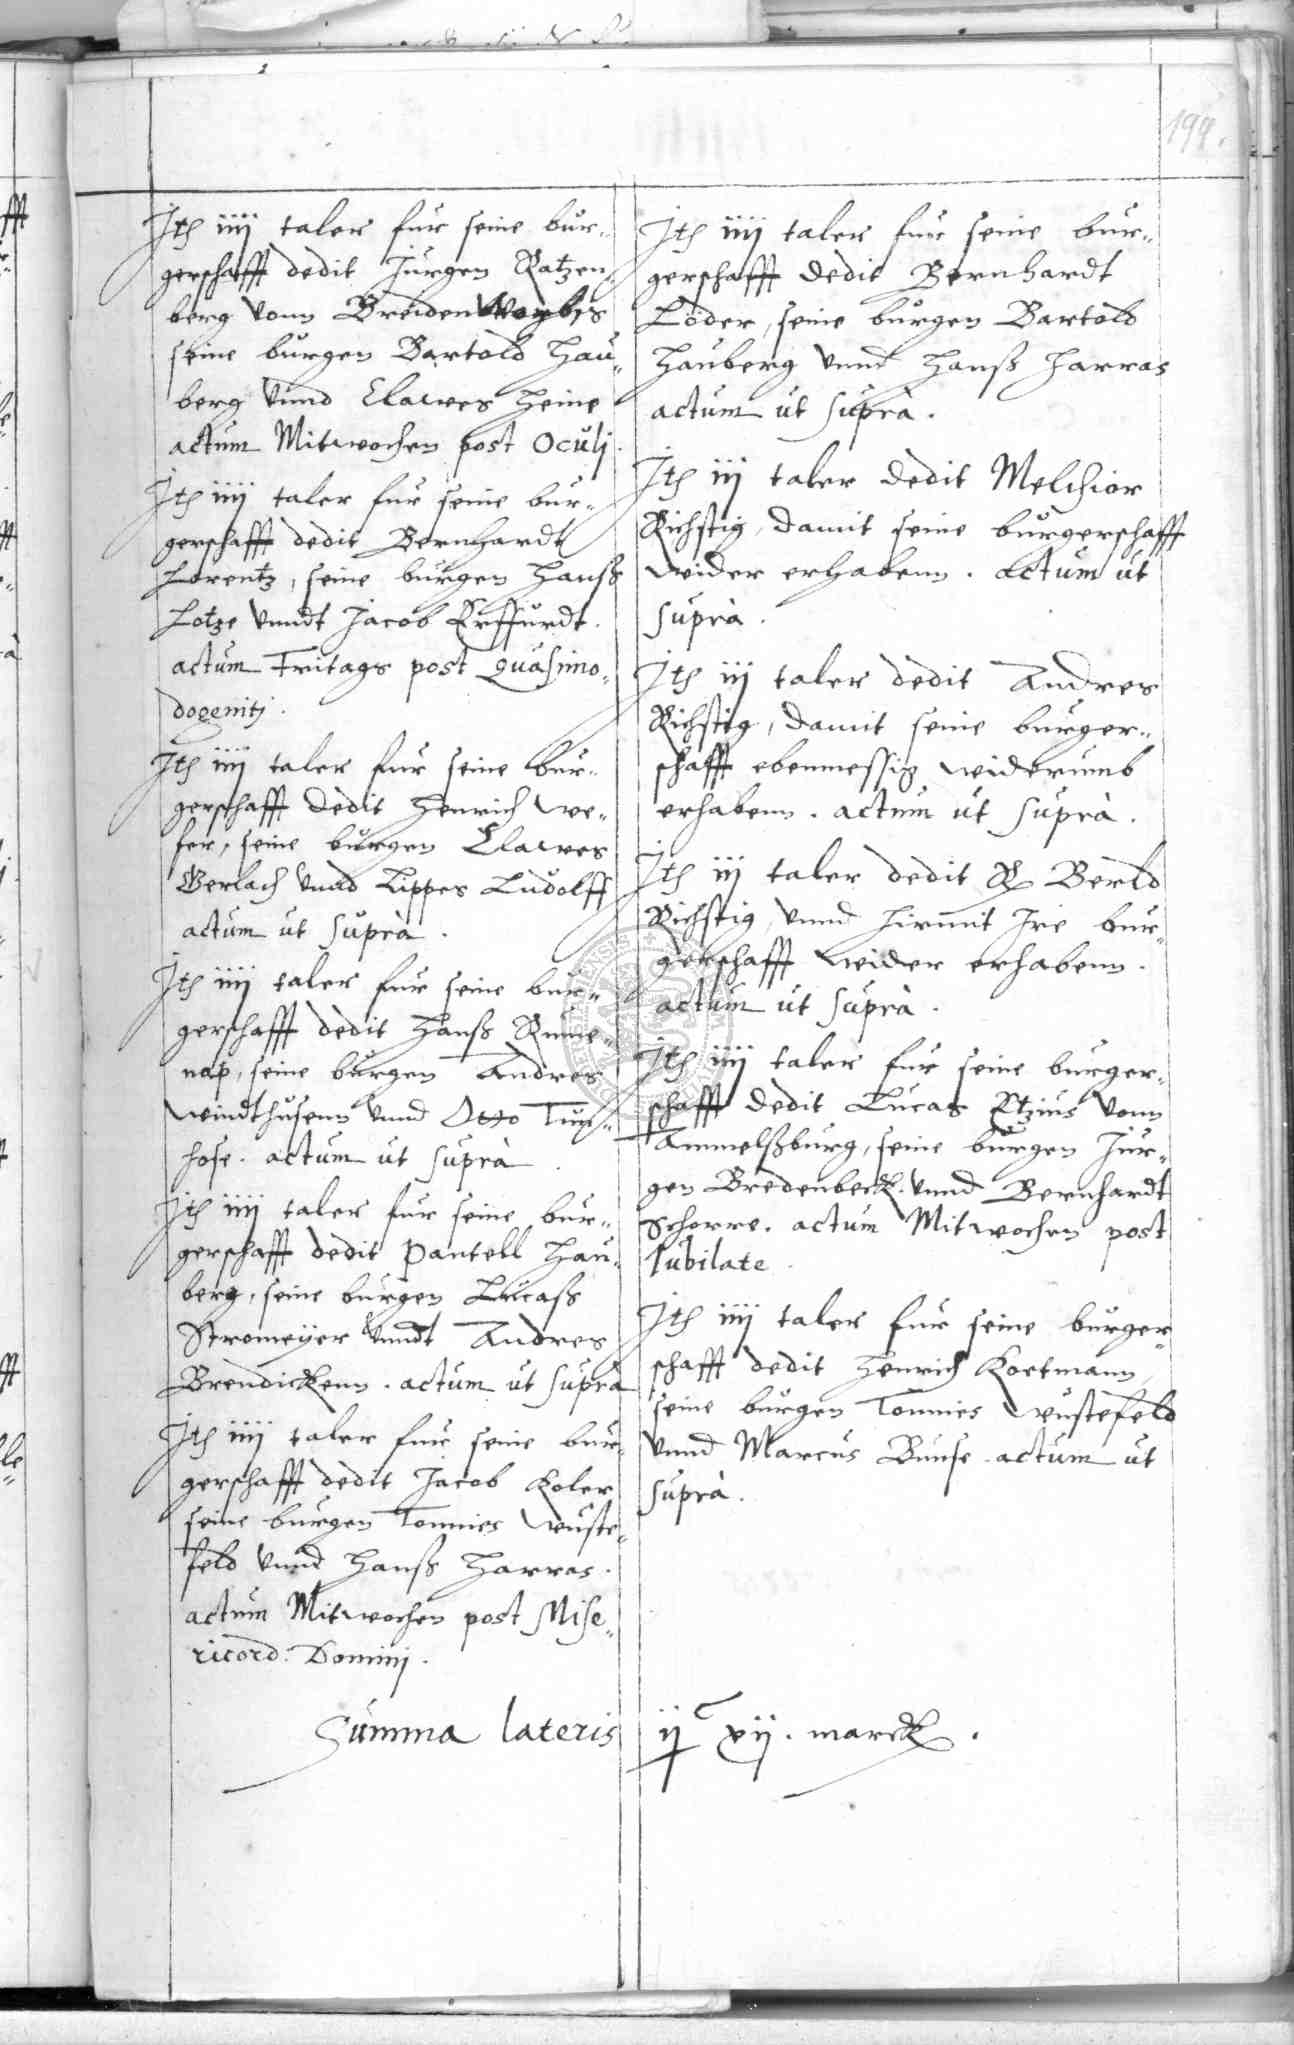 199.
Jth iiij taler fur seine bur„
gerschafft dedit Jurgen Ratzen„
berg vonn Breidenworbes
seine burgen Bartold Hau„
berg vnnd Clawes Heine
actum Mitwochen post Oculj.
Jth iiij taler fur seine bur„
gerschafft dedit Bernhardt
Lorentz, seine burgen Hanß
Lotze vnndt Jacob Erffurdt.
actum Fritags post Quasimo„
dogenitj.
Jth iiij taler fur seine bur„
gerschafft dedit Henrich We„
fer, seine burgen Clawes
Gerlach vnnd Lippes Ludolff
actum ut suprà.
Jth iiij taler fur seine bur„
gerschafft dedit Hanß Rume„
nap, seine burgen Andres
Windthusenn vnnd Otto Tun„
hose. actum ut suprà.
Jth iiij taler fur seine bur„
gerschafft dedit Pantell Hau„
berg, seine burgen Lucaß
Stromeÿer vnndt Andres
Brendickenn. actum ut suprà
Jth iiij taler fur seine bur„
gerschafft dedit Jacob Koler
seine burgen Tonnies Wuste„
feld vnnd Hanß Harras.
actum Mitwochen post Mise„
ricord: Dominj.
Jth iiij taler fur seine bur„
gerschafft dedit Bernhardt
Löder, seine burgen Bartold
Hauberg vnnd Hanß Harras
actum ut suprà.
Jth iij taler dedit Melchior
Richstig, damit seine burgerschafft
wider erhabenn. actum ut
suprà.
Jth iij taler dedit Andres
Richstig, damit seine burger„
schafft ebenmessig widerumb
erhabenn. actum ut suprà.
Jth iij taler dedit Berld
Richstig, vnnd hirmit Jre bur„
gerschafft wider erhabenn.
actum ut suprà.
Jth iiij taler fur seine burger„
schafft dedit Lucas Etzius vonn
Ammelßburg, seine burgen Jur„
gen Bredenbeck. vnnd Bernhardt
Schorre. actum Mitwochen post
Jubilate.
Jth iiij taler fur seine burger„
schafft dedit Henrich Kortmann,
seine burgen Tonnies Wustefeld
vnnd Marcus Bunse. actum ut
suprà.
Summa lateris ijC xij. marck.